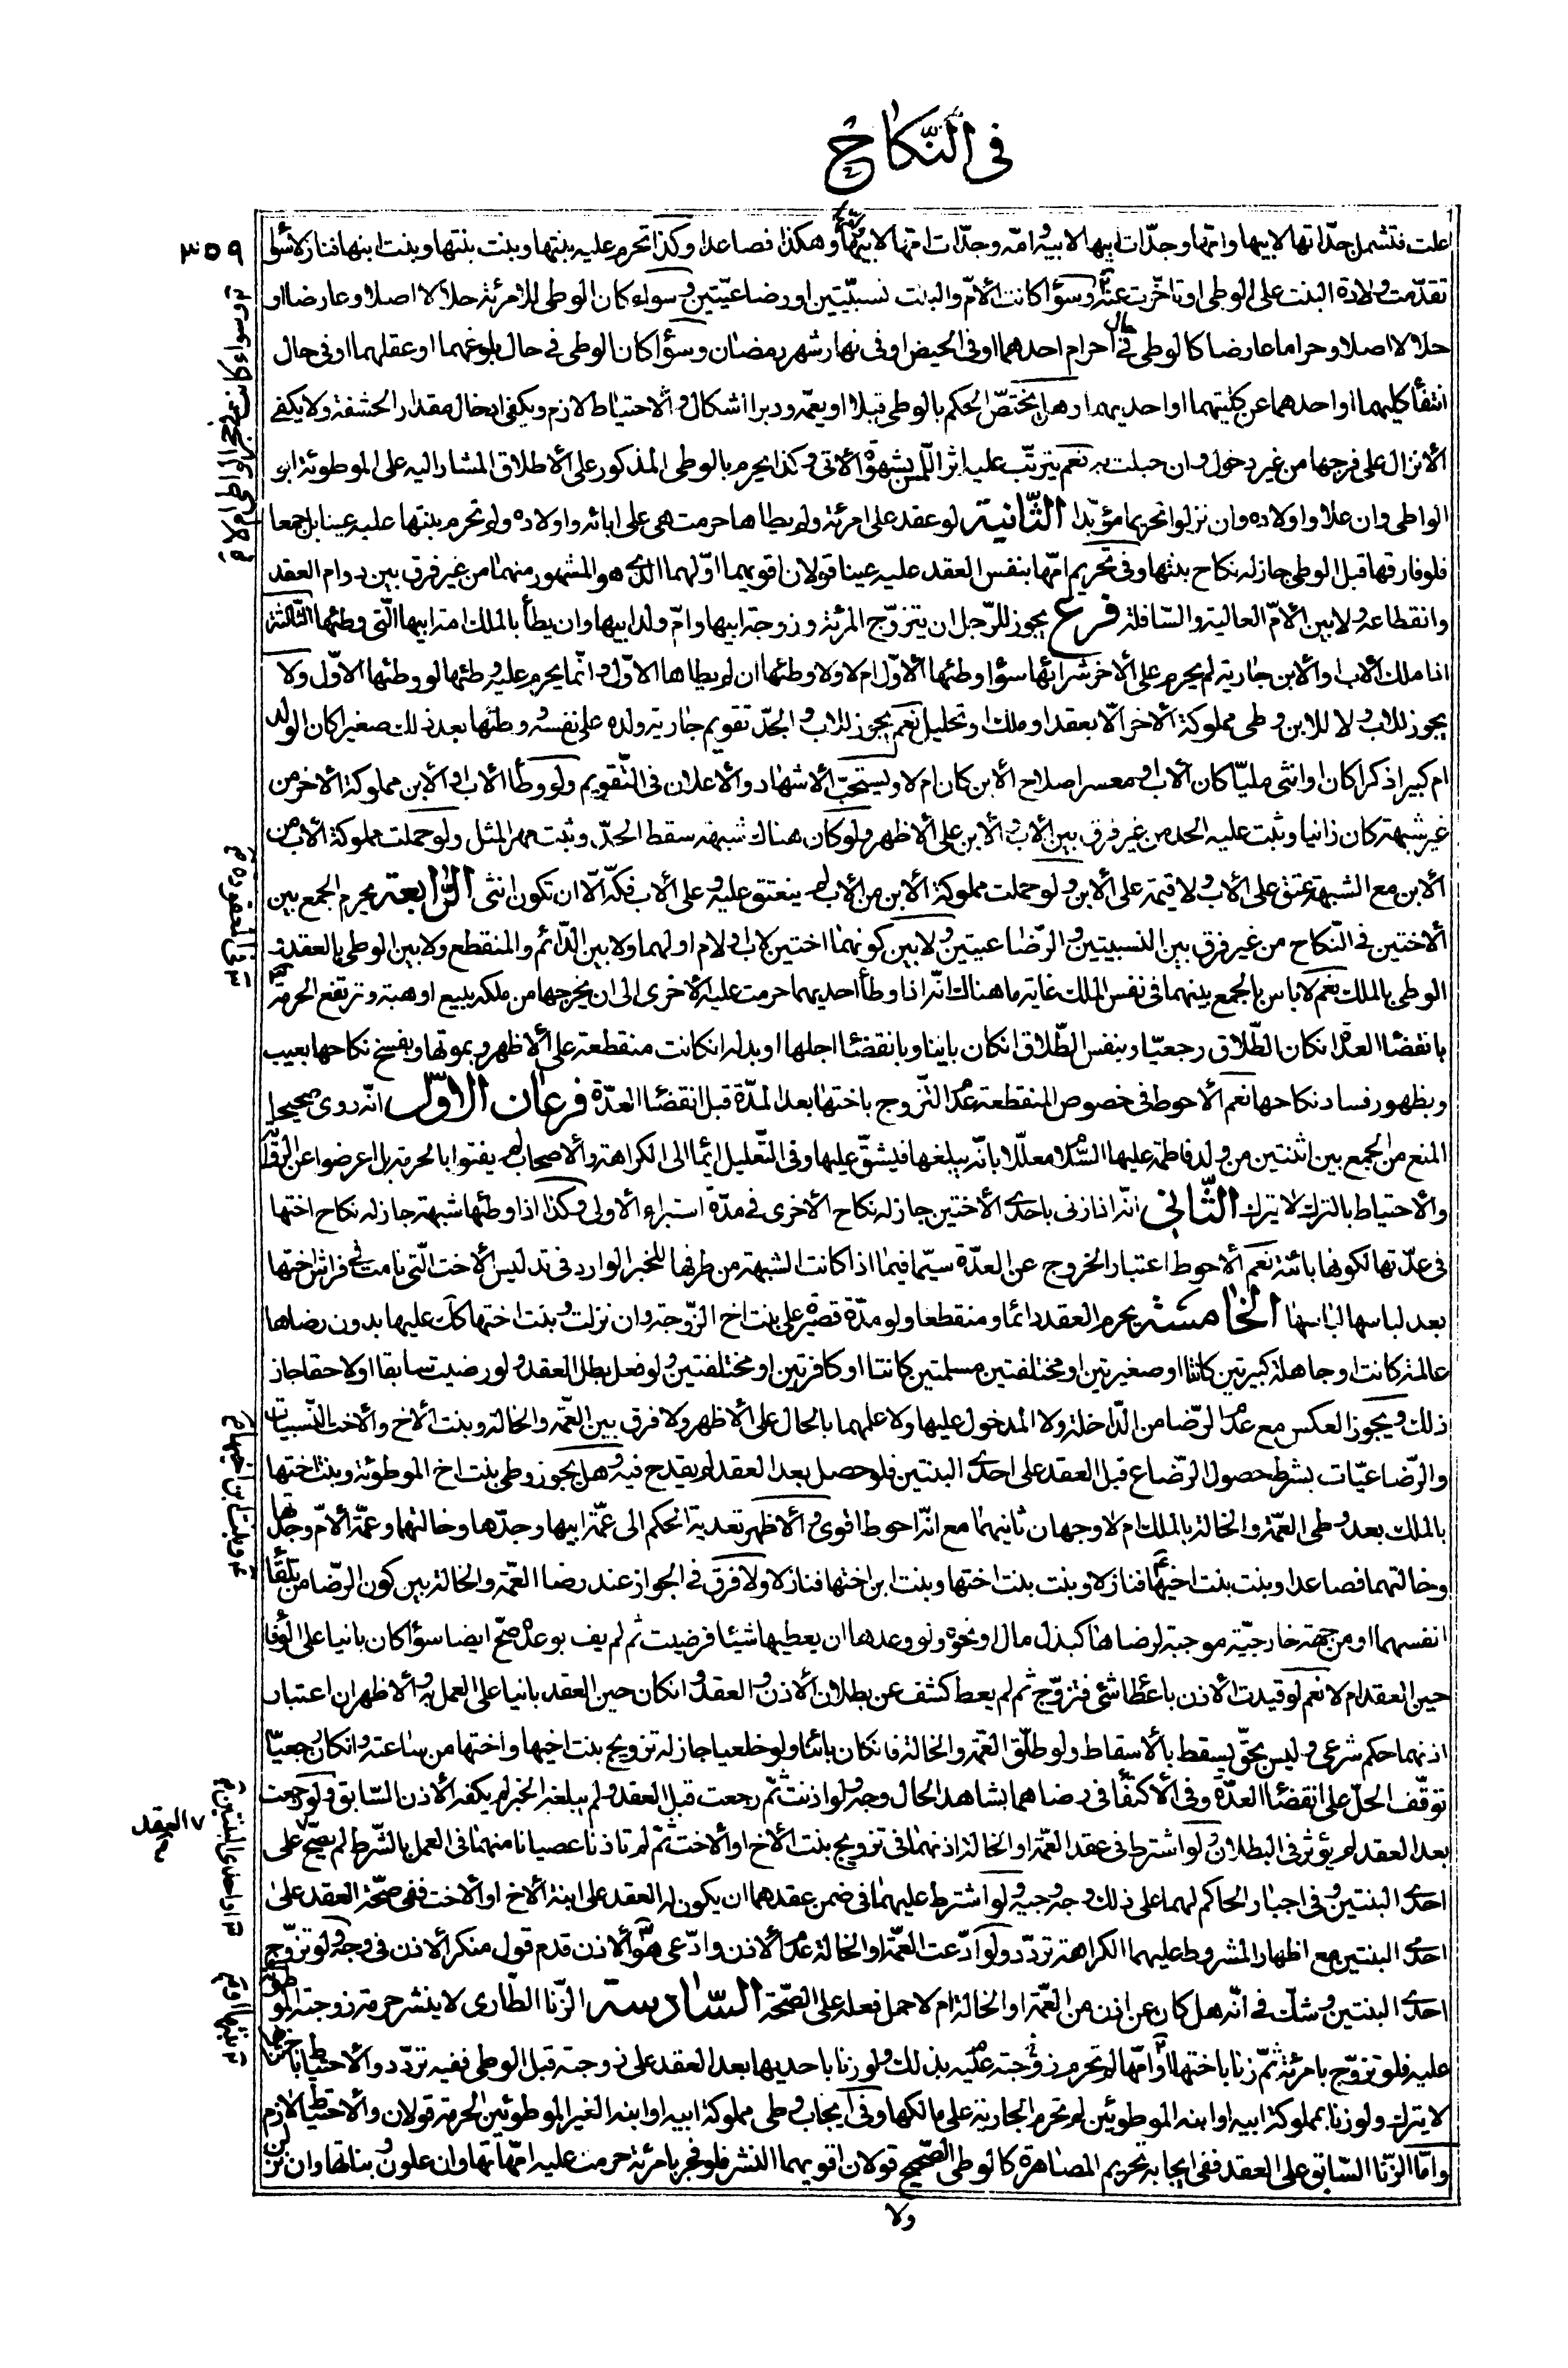 في النكاح
٣٥٩
علت فتشمل جدّاتها لابيها وامّها وجدّات ابيها لابيه وامّه وجدّات امّها لابيها وهكذا فصاعدا وكذا تحرم عليه بنتها وبنت بنتها وبنت ابنها فنازلا سواء
تقدّمت ولادة البنت على الوطى او تاخّرت عنه وسواء كانت الامّ والبنت نسبيّتين او رضاعيّتين وسواء كان الوطى للامرئة حلالا اصلا وعارضا او
حلالا اصلا وحراما عارضا كالوطى في حال احرام احدهما او في الحيض او في نهار شهر رمضان وسواء كان الوطى في حال بلوغهما او عقلهما او في حال
انتفاء كليهما او احدهما عن كليتهما او احديهما وهل يختصّ الحكم بالوطى قبلا او يعمّه ودبرا اشكال والاحتياط لازم ويكفى ادخال مقدار الحشفة ولا يكفى
الانزال على فرجها من غير دخول وان حبلت به نعم يترتّب عليه اثر اللّمس بشهوة الاتى وكذا يحرم بالوطى المذكور على الاطلاق المشار اليه على الموطوئة ابو
الواطى وان علا واولاده وان نزلوا تحريما مؤبّدا الثّانية لو عقد على امرئة ولم يطاها حرمت هى على ابائه واولاده ولم تحرم بنتها عليه عينا بل جمعا
فلو فارقها قبل الوطى جاز له نكاح بنتها وفى تحريم امّها بنفس العقد عليه عينا قولان اقويهما اوّلهما الذى هو المشهور منهما من غير فرق بين دوام العقد
وانقطاعه ولا بين الامّ العالية والسّافلة فرع يجوز للرّجل ان يتزوّج المرئة وزوجة ابيها وامّ ولد ابيها وان يطأ بالملك امة ابيها الّتى وطئها الثّالثة
اذا ملك الاب او الابن جارية لم يحرم على الاخر شرائها سواء وطئها الاوّل ام لا ولا وطئها ان لم يطاها الاوّل وانّما يحرم عليه وطئها لو وطئها الاوّل ولا
يجوز للاب ولا للابن وطى مملوكة الاخر الّا بعقد او ملك او تحليل نعم يجوز للاب والجدّ تقويم جارية ولده على نفسه ووطئها بعد ذلك صغيرا كان الولد
ام كبيرا ذكرا كان او انثى مليّا كان الاب او معسرا صلاح الابن كان ام لا ويستحبّ الاشهاد والاعلان فى التّقويم ولو وطأ الاب او الابن مملوكة الاخر من
غير شبهة كان زانيا وثبت عليه الحد من غير فرق بين الاب والابن على الاظهر ولو كان هناك شبهة سقط الحدّ وثبت مهر المثل ولو حملت مملوكة الاب من
الابن مع الشبهة عتق على الاب ولا قيمة على الابن ولو حملت مملوكة الابن من الاب لم ينعتق عليه وعلى الاب فكّه الّا ان تكون انثى الرّابعة يحرم الجمع بين
الاختين فى النّكاح من غير فرق بين النسبيتين والرّضاعيتين ولا بين كونهما اختين لاب او لام او لهما ولا بين الدّائم والمنقطع ولا بين الوطى بالعقد و
الوطى بالملك نعم لا باس بالجمع بينهما فى نفس الملك غاية ما هناك انّه اذا وطأ احديهما حرمت عليه الاخرى الى ان يخرجها من ملكه ببيع او هبة وترتفع الحرمة
بانقضاء العدّة ان كان الطّلاق رجعيّا وبنفس الطّلاق ان كان باينا وبانقضاء اجلها او بذله ان كانت منقطعة على الاظهر وبموتها وبفسخ نكاحها بعيب
وبظهور فساد نكاحها نعم الاحوط فى خصوص المنقطعة عدم التّزوج باختها بعد المدّة قبل انقضاء العدّة فرعان الاوّل انّه روى صحيحا
المنع من الجمع بين اثنتين من ولد فاطمة عليها السّلام معلّلا بانّه يبلغها فيشقّ عليها وفى التّعليل ايماء الى الكراهة والاصحاب لم يفتوا بالحرمة بل اعرضوا عن الرّواية
والاحتياط بالترك لا يترك الثّانى انّه اذا زنى باحدى الاختين جاز له نكاح الاخرى فى مدّة استبراء الاولى وكذا اذا وطئها شبهة جاز له نكاح اختها
فى عدّتها لكونها بائنة نعم الاحوط اعتبار الخروج عن العدّة سيّما فيما اذا كانت الشبهة من طرفها للخبر الوارد فى تدليس الاخت الّتى نامت فى فراش اختها
بعد لباسها لباسها الخامسة يحرم العقد دائما ومنقطعا ولو مدّة قصيرة على بنت اخ الزّوجة وان نزلت وبنت اختها كك عليها بدون رضاها
عالمة كانت او جاهلة كبيرتين كانتا او صغيرتين او مختلفتين مسلمتين كانتا او كافرتين او مختلفتين ولو فعل بطل العقد ولو رضيت سابقا او لاحقا جاز
ذلك ويجوز العكس مع عدم الرّضا من الدّاخلة ولا المدخول عليها ولا علمهما بالحال على الاظهر ولا فرق بين العمّة والخالة وبنت الاخ والاخت النّسبيات
والرّضاعيّات بشرط حصول الرّضاع قبل العقد على احدى البنتين فلو حصل بعد العقد لم يقدح فيه وهل يجوز وطى بنت اخ الموطوئة وبنت اختها
بالملك بعد وطى العمّة والخالة بالملك ام لا وجهان ثانيهما مع انّه احوط اقوى والاظهر تعدية الحكم الى عمّة ابيها وجدّها وخالتهما وعمّة الامّ وجدّتها
وخالتهما فصاعدا وبنت بنت اخيها فنازلا وبنت بنت اختها وبنت ابن اختها فنازلا ولا فرق فى الجواز عند رضا العمّة والخالة بين كون الرّضا من تلقاء
انفسهما او من جهة خارجيّة موجبة لرضاها كبذل مال او نحوه ولو وعدها ان يعطيها شيئا فرضيت ثم لم يف بوعده صحّ ايضا سواء كان بانيا على الوفاء
حين العقد ام لا نعم لو قيدت الاذن باعطاء شئ فتزوّج ثم لم يعط كشف عن بطلان الاذن والعقد وان كان حين العقد بانيا على العمل به والاظهر ان اعتبار
اذنهما حكم شرعى وليس بحقّ يسقط بالاسقاط ولو طلّق العمّة والخالة فان كان بائنا ولو خلعيا جاز له تزويج بنت اخيها واختها من ساعته وان كان رجعيّا
توقّف الحلّ على انقضاء العدّة وفى الاكتفاء فى رضاهما بشاهد الحال وجه ولو اذنت ثمّ رجعت قبل العقد ولم يبلغه الخبر لم يكفه الاذن السّابق ولو رجعت
بعد العقد لم يؤثر فى البطلان ولو اشترط فى عقد العمّة او الخالة اذنهما فى تزويج بنت الاخ او الاخت ثمّ لم تاذنا عصيانا منهما فى العمل بالشّرط لم يصحّ على
العقد
احدى البنتين وفى اجبار الحاكم لهما على ذلك وجه وجيه ولو اشترط عليهما فى ضمن عقدهما ان يكون له العقد على ابنة الاخ او الاخت ففى صحّة العقد على
احدى البنتين مع اظهار المشروط عليهما الكراهة تردّد ولو ادّعت العمّة او الخالة عدم الاذن وادّعى هو الاذن قدم قول منكر الاذن فى وجه ولو تزوّج
احدى البنتين وشكّ فى انّه هل كان عن اذن من العمّة او الخالة ام لا حمل فعله على الصّحة السّادسة الزّنا الطّارى لا ينشر حرمة زوجته الموطوئة
عليه فلو تزوّج بامرئة ثمّ زنا باختها او امّها لم تحرم زوجته عليه بذلك ولو زنا باحديها بعد العقد على زوجته قبل الوطى ففيه تردّد والاحتياط باجتنابها
لا يترك ولو زنا بمملوكة ابيه او ابنه الموطوئين لم تحرم الجارية على مالكها وفى ايجاب وطى مملوكة ابيه او ابنه الغير الموطوئين الحرمة قولان والاحتياط لازم
وامّا الزّنا السّابق على العقد ففى ايجابه تحريم المصاهرة كالوطى الصّحيح قولان اقويهما النشر فلو فجر بامرئة حرمت عليه امّهاتها وان علون وبناتها وان نزلن
ولا